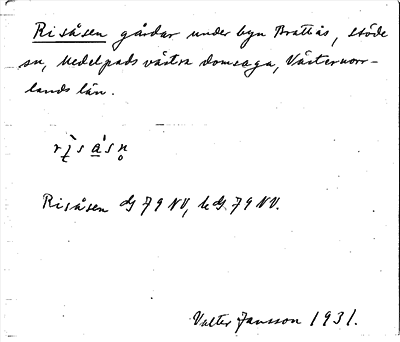 Risåsen gårdar under byn Brattås, Stöde
sn, Medelpads västra domsaga, Västernorr-
lands län.
Risåsen G 79 NV, k G. 79 NV.
Valter Jansson 1931.